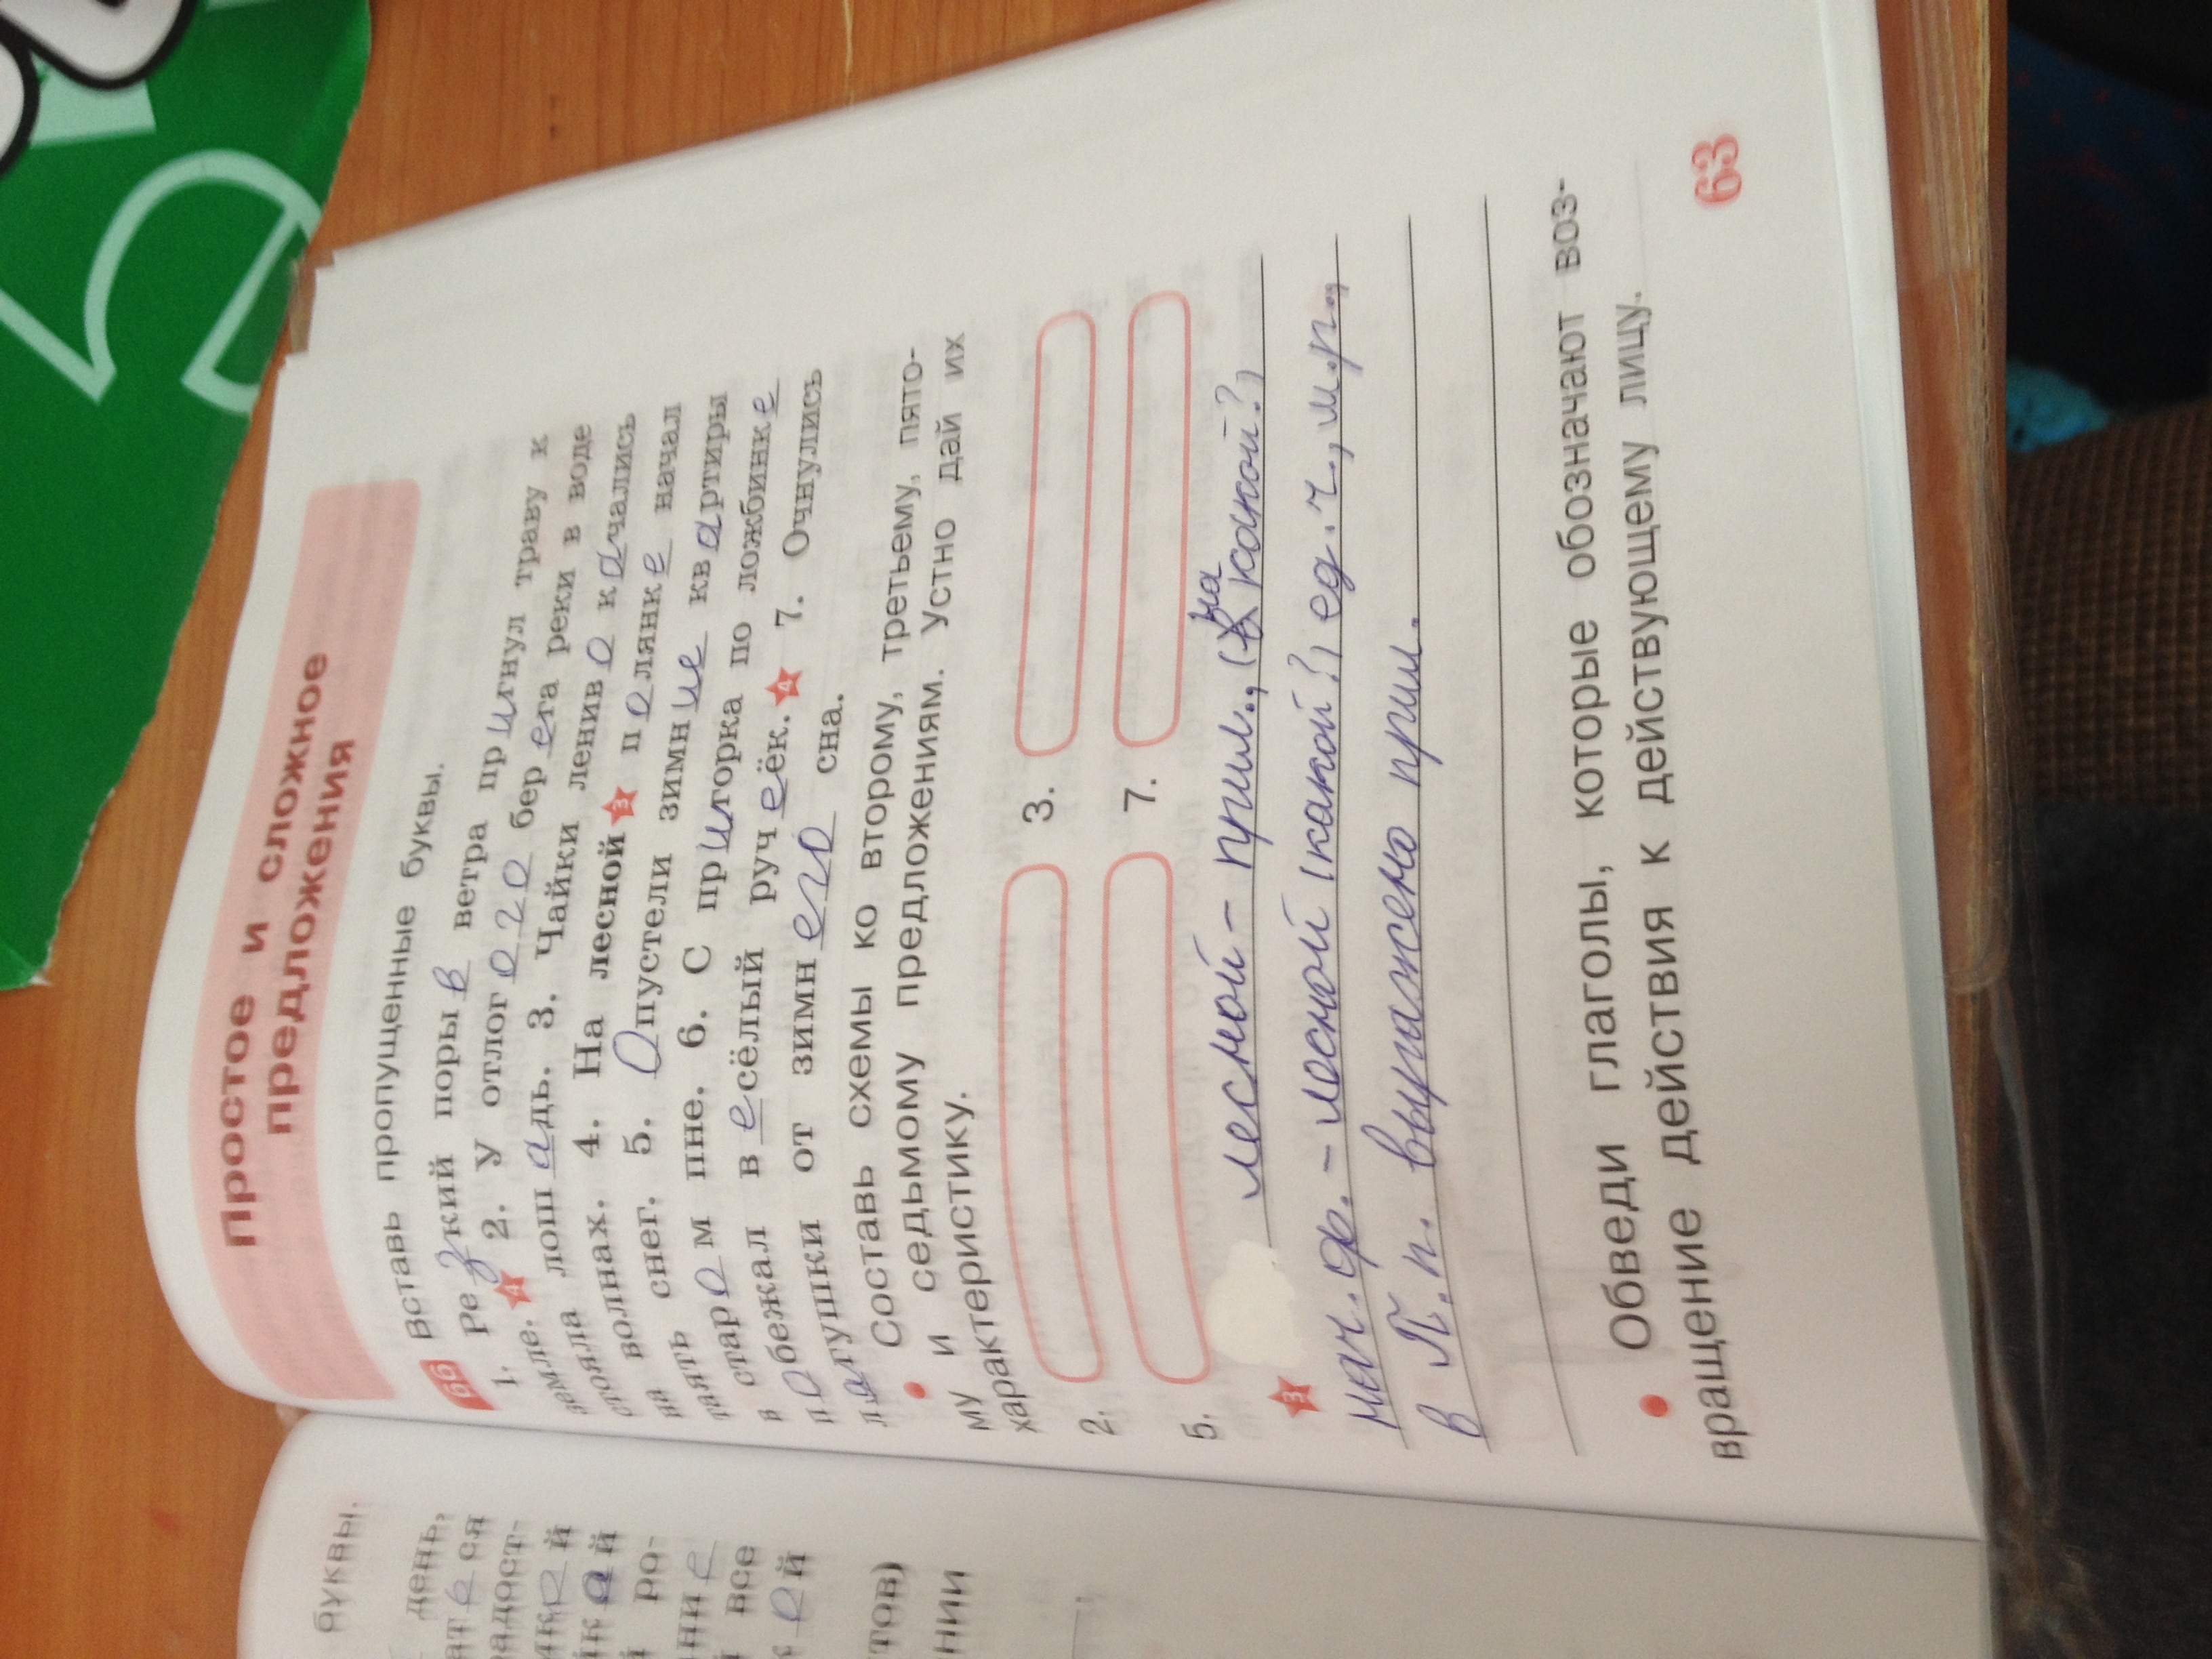 Простое и сложное
предложения
66 Вставь пропущенные буквы.
1. Резкий порыв ветра пригнул траву к
земле. 4 2. У отлогого берега реки в воде
стояла лошадь. 3. Чайки лениво качались
на волнах. 4. На лесной 3 полянке начал
таять снег. 5. Опустели зимние квартиры
в старом пне. 6. С пригорка по ложбинке
побежал весёлый ручеёк. 4 7. Очнулись
лягушки от зимнего сна.
• Составь схемы ко второму, третьему, пято-
му и седьмому предложениям. Устно дай их
характеристику.
2. 3.
5. 7.
3 лесной - прил., (на какой?)
нач. ф. - лесной (какой?) ед. ч., м.р.,
в П.п. выражено прил.
• Обведи глаголы, которые обозначают воз-
вращение действия к действующему лицу.
63
буквы.
день,
ся
адост-
й
й
ро-
все
й
тов)
нии